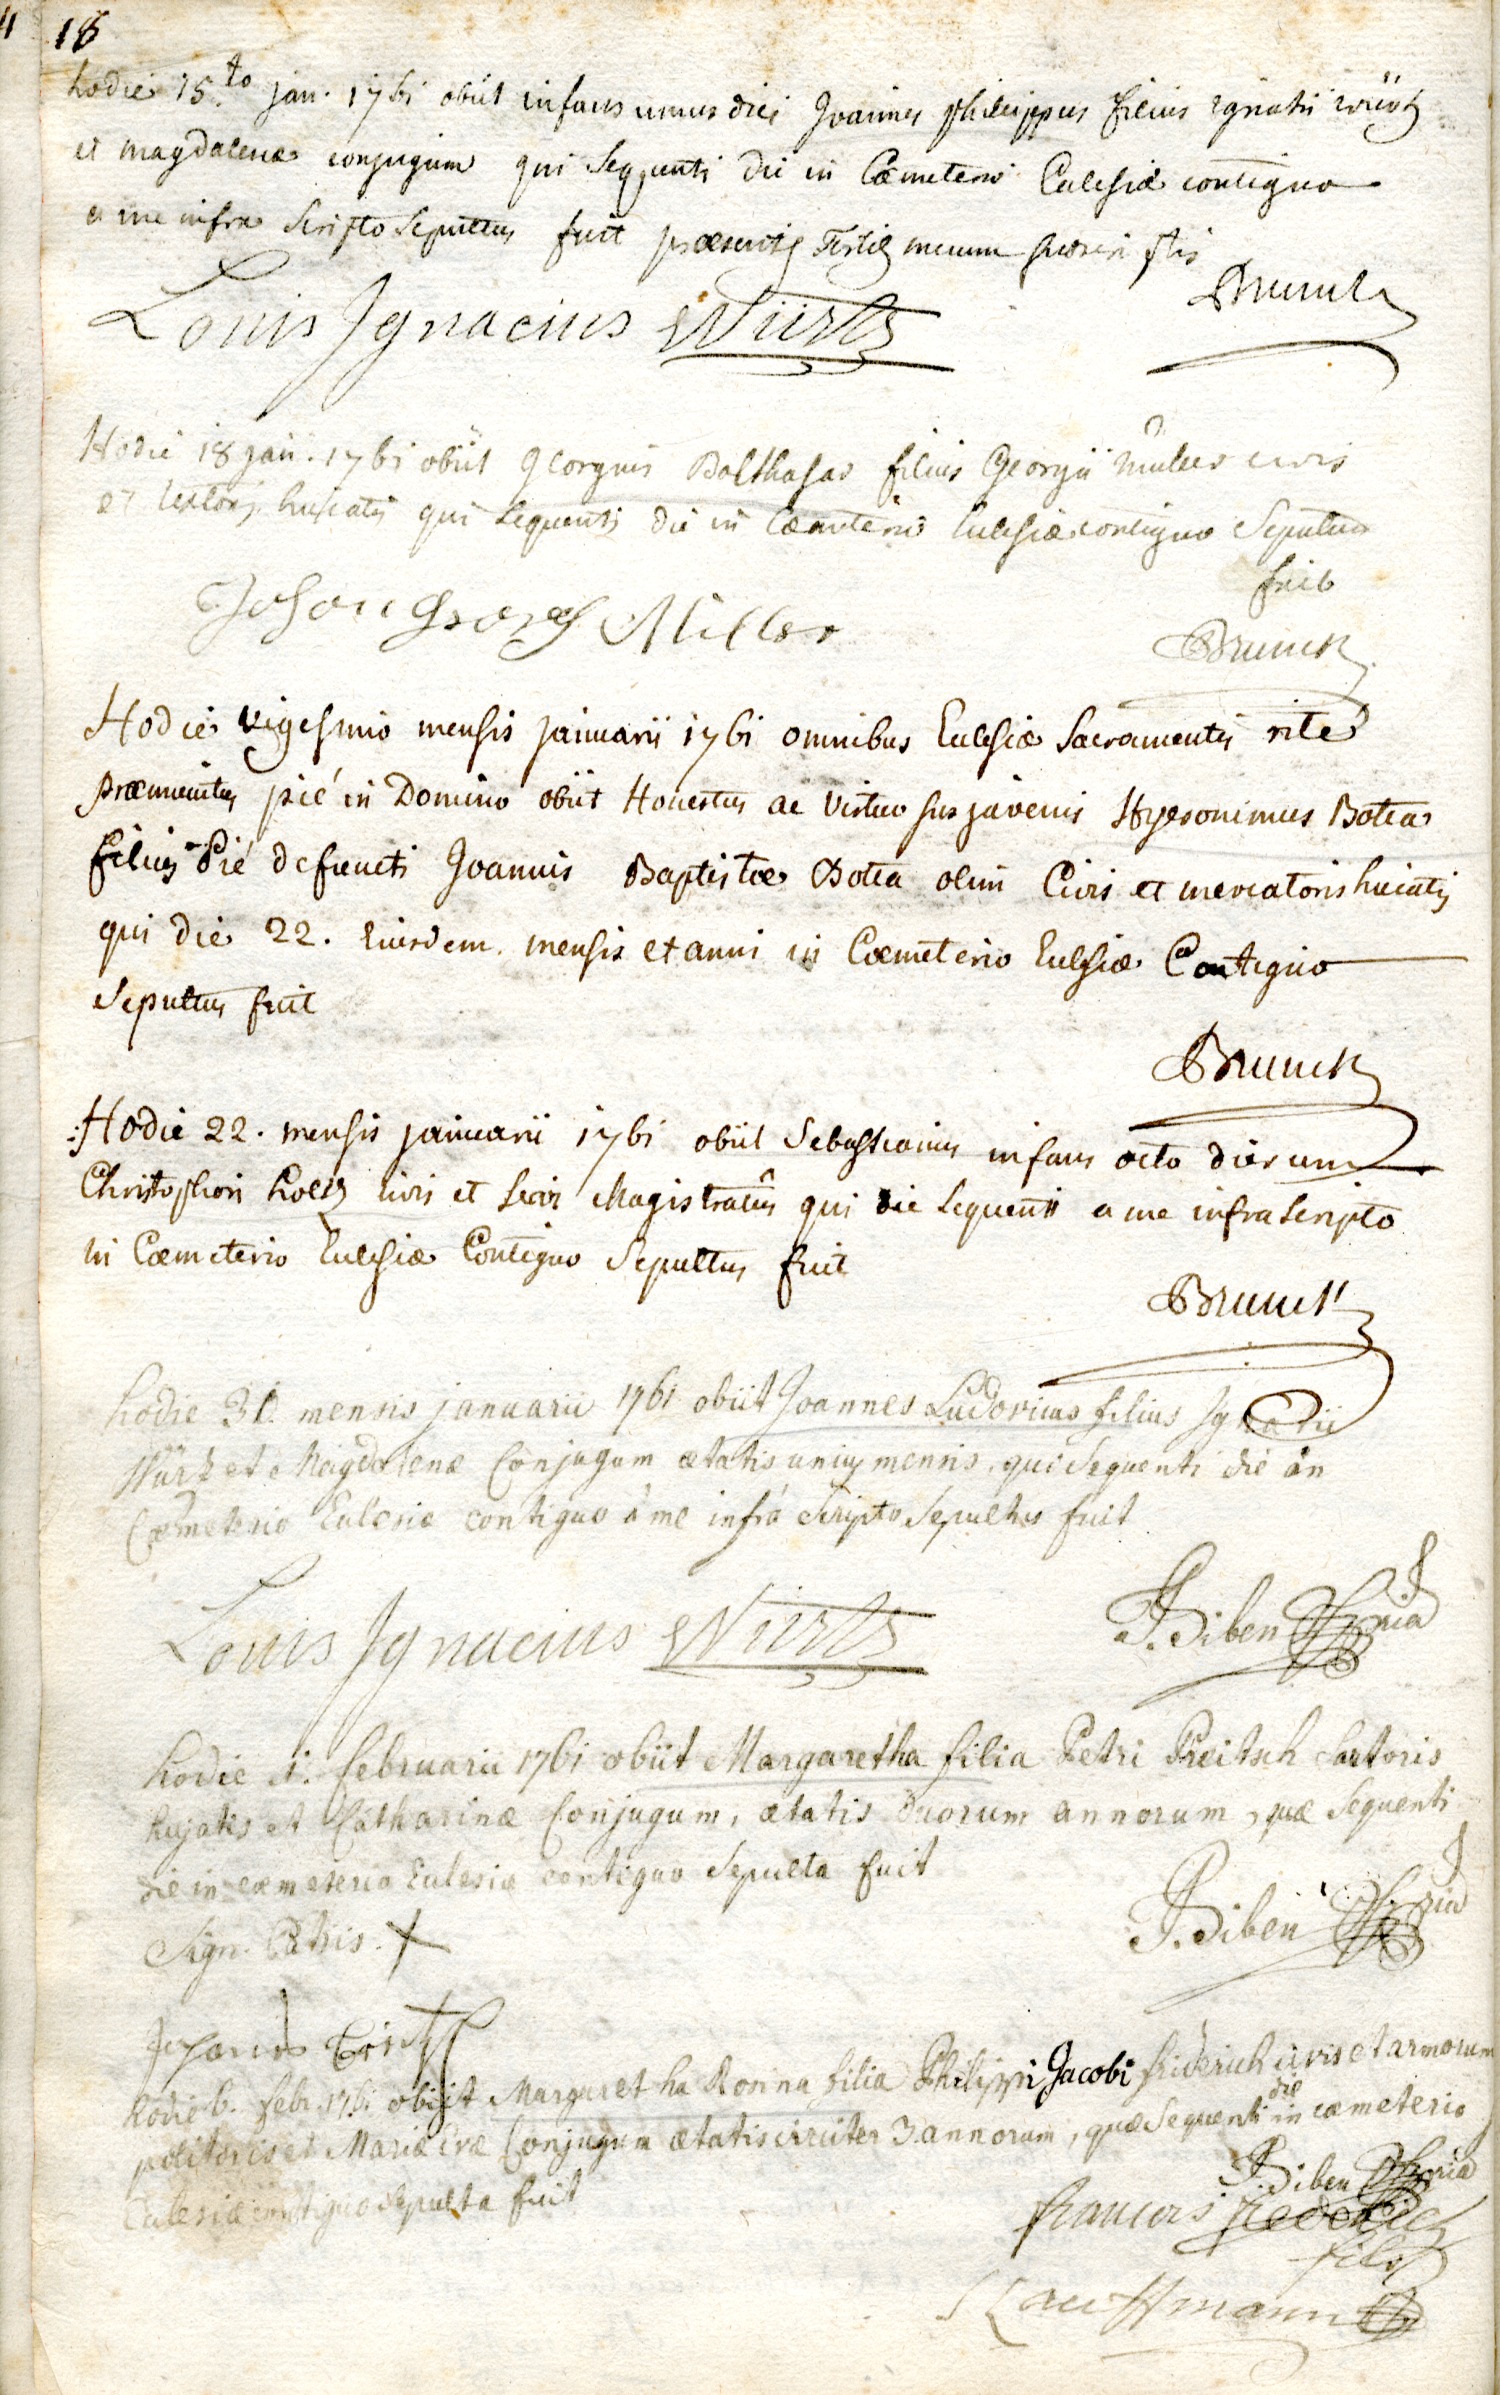 18
hodie 15.to jan. 1761 obiit infans unius diei Joannes philippus filius Ignatii würtz
et magdalenæ conjugum qui sequenti die in Cœmeterio Ecclesiæ contiguo
a me infra scripto sepultus fuit præsentibus testibus mecum
Louis Ignacius Würtz
Brunck
Hodie 18 jan. 1761 obiit Georgius Balthasar filius Georgii müller civis
et textoris huiatis qui sequenti die in Cœmeterio Ecclesiæ contiguo Sepultus
fuit
Johan Georg Miller
Brunck
Hodie vigesimo mensis januarii 1761 omnibus Ecclesiæ Sacramentis rite
præmunitus pié in Domino obiit Honestus ac virtuosus juvenis Hyeronimus Botea
filius pié defuncti Joannis Baptistæ Botea olim Civis et mercatoris huiatis
qui die 22. Eiusdem mensis et anni in Cœmeterio Ecclesiæ Contiguo
Sepultus fuit
Brunck
Hodie 22. mensis januarii 1761 obiit Sebastianus infans octo dierum
Christophori civis et Magistratûs qui die sequenti a me infra scripto
in Cœmeterio Ecclesiæ Contiguo Sepultus fuit
Brunck
hodie 31. mensis januarii 1761 obiit Joannes Ludovicus filius Ignatii
Würtz et Magdalenæ Conjugum ætatis unius mensis, qui Sequenti die in
Cœmeterio Eclesiæ contiguo à me infrà Scripto Sepultus fuit
Louis Ignacius Würtz
hodie 1. februarii 1761 obiit Margaretha filia Petri Preitsch Sartoris
hujatis et Catharinæ Conjugum, ætatis duorum annorum, quæ Sequenti
die in cœmeterio Eclesiæ contiguo Sepulta fuit
Sign. Patris. +
hodie 6. febr. 1761 obiit Margaretha Rosina filia Philippi Jacobi friderich civis et armorum
politoris et Mariæ Evæ Conjugum ætatis circiter 3 annorum, quæ Sequenti die in cœmeterio
Eclesiæ contiguo Sepulta fuit
francois friederich
fils
Kauffmann